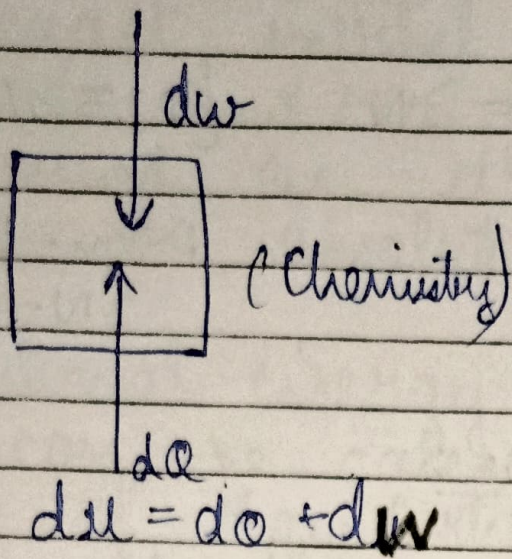 dw
(Chemistry)
dQ
du = dQ + dw